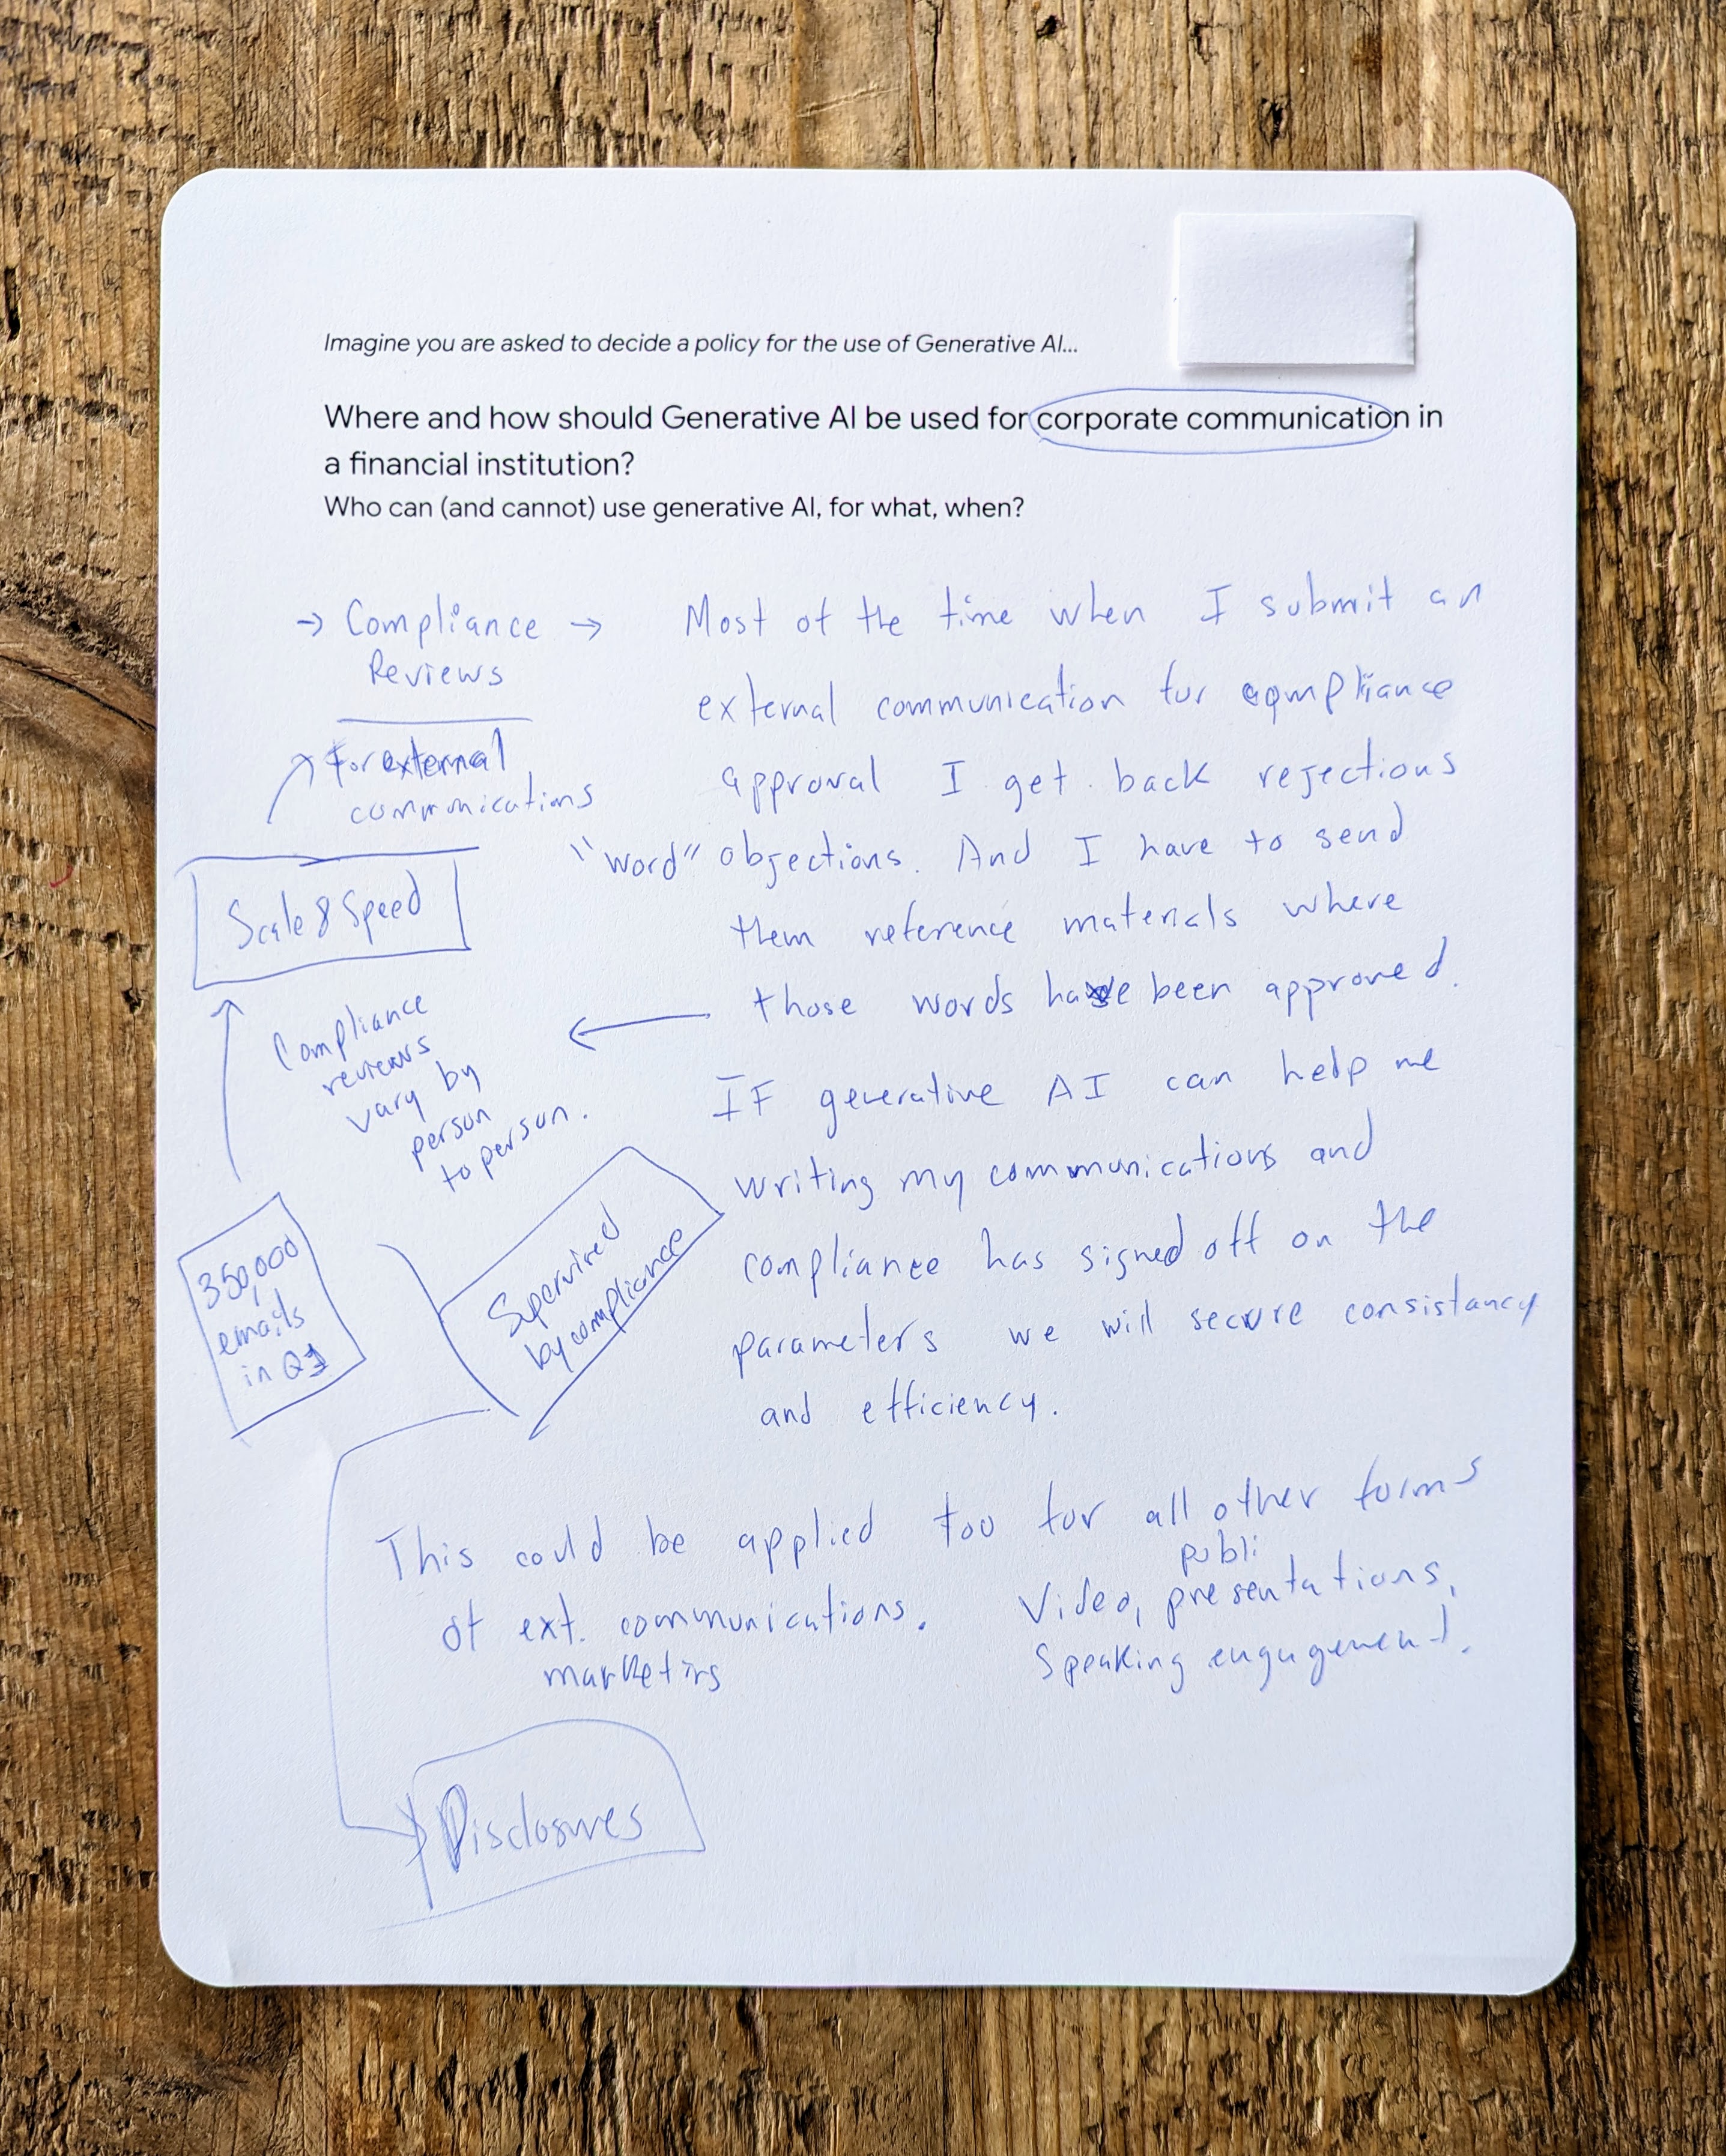 Imagine you are asked to decide a policy for the use of Generative AI...
Where and how should Generative AI be used for corporate communication in
a financial institution?
Who can (and cannot) use generative AI, for what, when?
→ Compliance →
Reviews
For external
communications
Scale & Speed
Compliance
reviews
vary by
person
to person.
350,000
emails
in Q1
Supervised
by compliance
Most of the time when I submit an
external communication for compliance
approval I get back rejections
"word" objections. And I have to send
them reference materials where
those words have been approved.
IF generative AI can help me
writing my communications and
compliance has signed off on the
parameters we will secure consistancy
and efficiency.
This could be applied too for all other forms
of ext. communications.
marketing
publi
Video, presentations,
Speaking engagement.
Disclosures